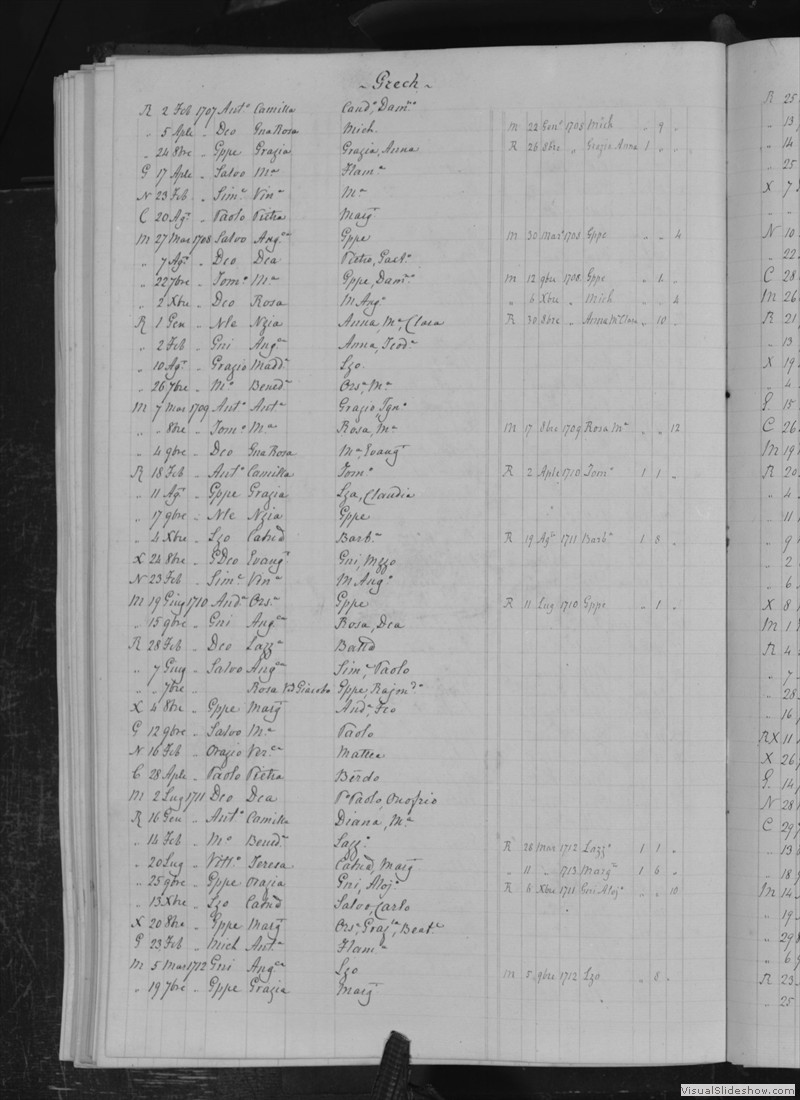 ~ Grech ~
R 2 Feb 1707 Ant.ª Camilla Cand.ª, Dam.ⁿª
„ 5 Aple „ Dco Gna Rosa Mich. M 22 Gen.º 1708 Mich „ 9 „
„ 24 8bre „ Gppe Grazia Grazia, Anna R 26 8bre „ Grazia Anna 1 „ „
G 17 Aple „ Salvo M.ª Flam.ª
N 23 Feb „ Sim.ᵉ Vin.ª M.ª
C 20 Ag.º „ Paolo Pietra Marg.ᵗ
M 27 Mar 1708 Salvo Ang.ᶜª Gppe M 30 Mar.º 1708 Gppe „ „ 4
„ 7 Ag.º „ Dco Dca Pietro, Gast.º
„ 22 7bre „ Tom.º M.ª Gppe, Dam.ⁿª M 12 9bre 1708 Gppe „ 1 „
„ 2 Xbre „ Dco Rosa M Ang.º „ 6 Xbre „ Mich „ „ 4
R 1 Gen „ Nle Nzia Anna, M.ª, Clara R 30 8bre „ Anna M.ª Clara „ 10 „
„ 2 Feb „ Gni Ang.ª Anna, Teod.ª
„ 10 Ag.º „ Grazio Madd.ª Lzo.
„ 26 7bre „ M.º Bened.ª Ors.ª, M.ª
M 7 Mar 1709 Ant.º Ant.ª Grazio, Ign.º
„ „ 8bre „ Tom.º M.ª Rosa, M.ª M 17 8bre 1709 Rosa M.ª „ „ 12
„ 4 9bre „ Dco Gna Rosa M.ª, Evang.ᵗ
R 18 Feb „ Ant.º Camilla Tom.º R 2 Aple 1710 Tom.º 1 1 „
„ 11 Ag.º „ Gppe Grazia Lza, Claudia
„ 17 9bre „ Nle Nzia Gppe
„ 4 Xbre „ Lzo Catñd Barb.ª R 19 Ag.º 1711 Barb.ª 1 8 „
X 24 8bre „ GDco Evang.ᵗ Gni, Mzzo
N 23 Feb „ Sim.ᵉ Vin.ª M Ang.º
M 19 Giug 1710 And.ª Ors.ª Gppe R 11 Lug 1710 Gppe „ 1 „
„ 15 9bre „ Gni Ang.ª Rosa, Dca
R 28 Feb „ Dco Lazz.ª Battd
„ 7 Giug „ Salvo Ang.ᶜª Sim.ᵉ, Paolo
„ „ 7bre „ Rosa Vᵃ Giacobo Gppe, Rajon.ᵈº
X 4 8bre „ Gppe Marg.ᵗ And.ª, Fco
G 12 9bre „ Salvo M.ª Paolo
N 16 Feb „ Orazio Ver.ᶜª Mattea
C 28 Aple „ Paolo Pietra Bërdo
M 2 Lug 1711 Dco Dca P.º Paolo, Onofrio
R 16 Gen „ Ant.º Camilla Diana, M.ª
„ 14 Feb „ M.º Bened.ª Lazz.º R 26 Mar 1712 Lazz.º 1 1 „
„ 20 Lug „ Vitt.º Teresa Catñd, Marg.ᵗ „ 11 „ 1713 Marg.ᵗª 1 6 „
„ 25 9bre „ Gppe Orazia Gni, Aloj.º R 6 Xbre 1711 Gni Aloj.º „ „ 10
„ 13 Xbre „ Lzo Catñd Salvo, Carlo
X 20 8bre „ Gppe Marg.ᵗ Ors.ª, Graz.ˡª, Beat.ᵉ
G 23 Feb „ Mich Ant.ª Flam.ª
M 5 Mar 1712 Gni Ang.ᶜª Lzo M 5 9bre 1712 Lzo „ 8 „
„ 19 7bre „ Gppe Grazia Marg.ᵗ
R 25
„ 13
„ 14
„ 25
X 7
N 10
„ 22
C 28
M 26
R 21
„ 13
X 19
„ 4
G 15
C 26
M 19
R 20
„ 4
„ 11
„ 9
„ 2
„ 6
X 8
M 1
R 4
„ 7
„ 28
„ 16
RX 11
X 26
G 14
N 28
C 29
„ 13
„ 18
M 14
„ 19
„ 29
„ 6
R 23
„ 25
VisualSlideshow.com